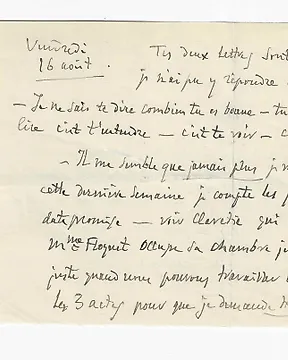 Vendredi
16 août.
Tes deux lettres sont
je n'ai pu y répondre
– Je ne sais te dire combien tu es bonne – tu
lire c'est t'entendre – c'est te voir – c
– Il me semble que jamais plus, je n
cette dernière semaine je compte les j
date promise – voir Claretie qui
Mme Floquet occupe sa chambre je
juste quand nous pouvons travailler
les 3 actes pour que je demande